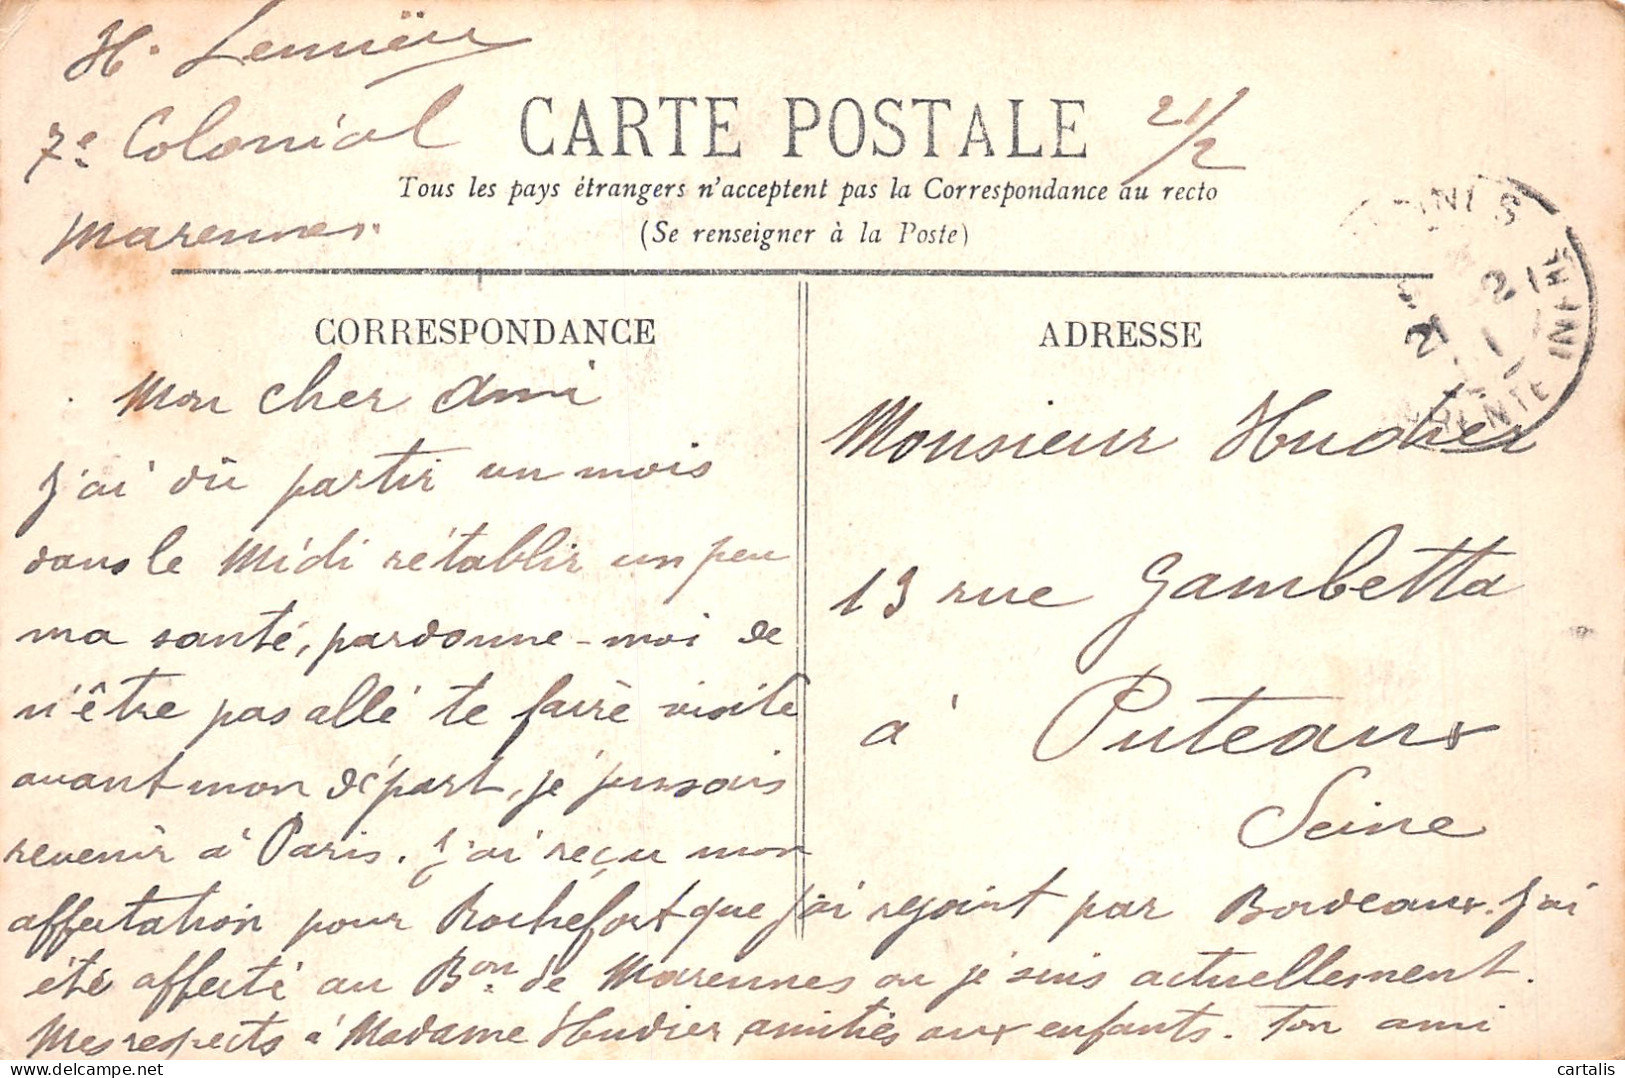 H.
7e Colonial
Marennes.
CARTE POSTALE
21/2
Tous les pays étrangers n'acceptent pas la Correspondance au recto
(Se renseigner à la Poste)
CORRESPONDANCE
Mon cher Ami
J'ai dû partir un mois
dans le Midi rétablir un peu
ma santé, pardonne-moi de
n'être pas allé te faire visite
avant mon départ, je pensais
revenir à Paris. J'ai reçu mon
affectation pour Rochefort que j'ai rejoint par Bordeaux. J'ai
été affecté au Bon de Marennes ou je suis actuellement.
Mes respects à Madame Hudier, amitiés aux enfants. Ton ami
ADRESSE
21 2
INFRE
Monsieur Hudier
13 rue Gambetta
à Puteaux
Seine
cartalis